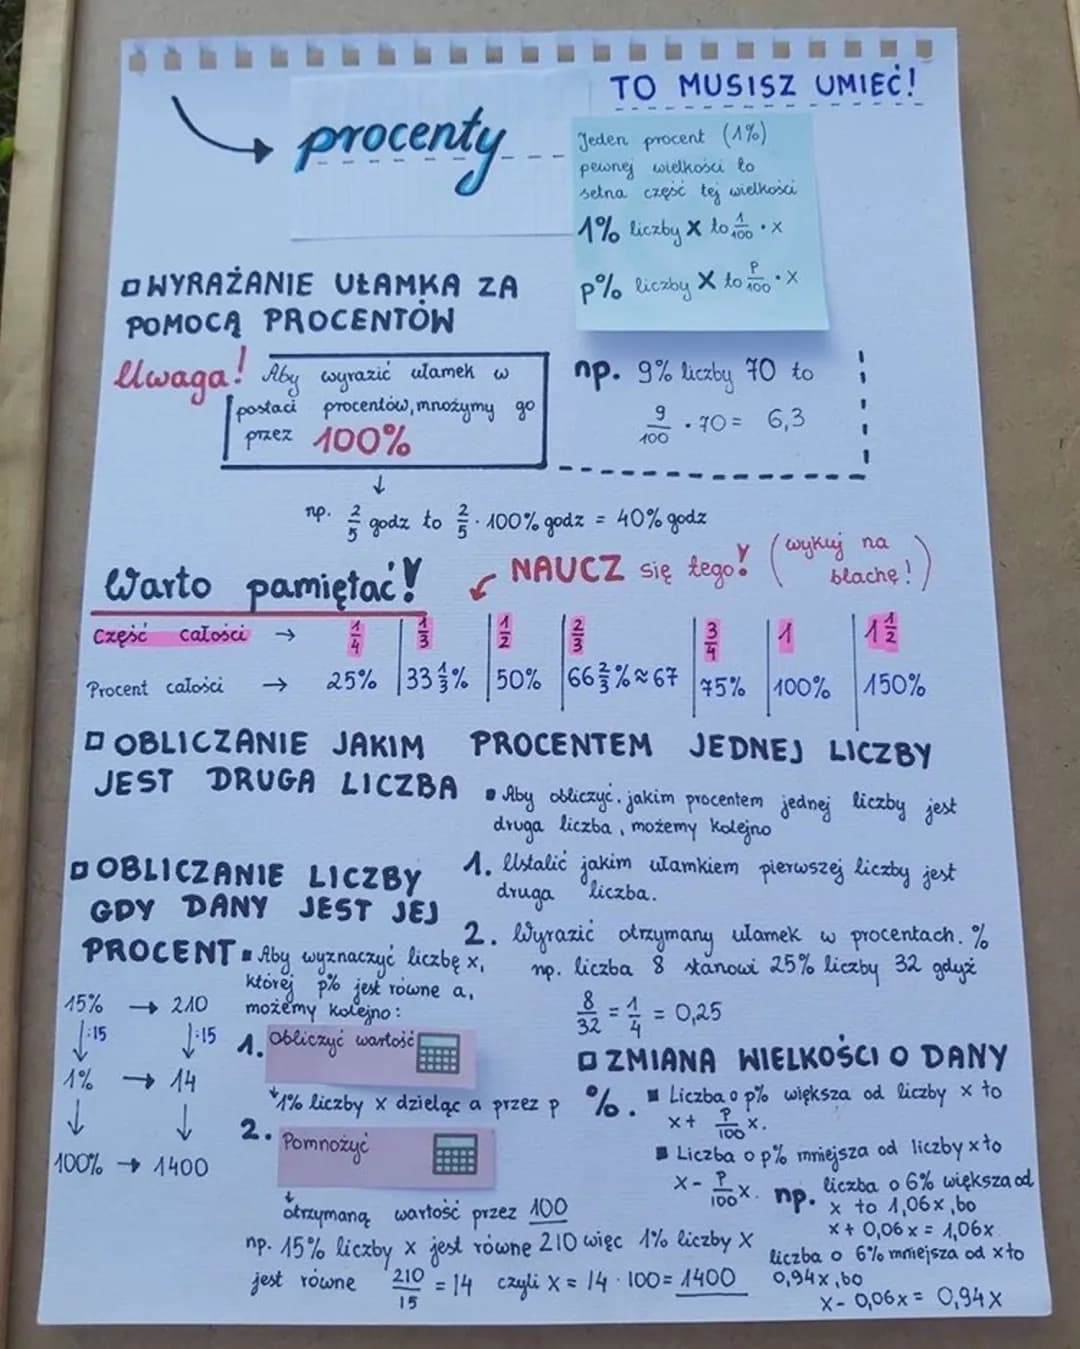 TO MUSISZ UMIEĆ!
procenty
Jeden procent (1%)
pewnej wielkości to
setna część tej wielkości
1% liczby x to 1/100 · x
p% liczby x to p/100 · x
WYRAŻANIE UŁAMKA ZA
POMOCĄ PROCENTÓW
Uwaga! Aby wyrazić ułamek w
postaci procentów, mnożymy go
przez 100%
np. 9% liczby 70 to
9/100 · 70 = 6,3
↓
np. 2/5 godz to 2/5 · 100% godz = 40% godz
Warto pamiętać!
NAUCZ się tego! (wykuj na
blachę!)
Część całości → 1/4 | 1/3 | 1/2 | 2/3 | 3/4 | 1 | 1 1/2
Procent całości → 25% | 33 1/3% | 50% | 66 2/3% ≈ 67 | 75% | 100% | 150%
OBLICZANIE JAKIM PROCENTEM JEDNEJ LICZBY
JEST DRUGA LICZBA
▪ Aby obliczyć. jakim procentem jednej liczby jest
druga liczba, możemy kolejno
1. Ustalić jakim ułamkiem pierwszej liczby jest
druga liczba.
2. Wyrazić otrzymany ułamek w procentach. %
np. liczba 8 stanowi 25% liczby 32 gdyż
8/32 = 1/4 = 0,25
OBLICZANIE LICZBY
GDY DANY JEST JEJ
PROCENT
▪ Aby wyznaczyć liczbę x,
której p% jest równe a,
możemy kolejno:
15% → 210
↓ :15 ↓ :15
1% → 14
↓ ↓
100% → 1400
1. Obliczyć wartość
1% liczby x dzieląc a przez p
2. Pomnożyć
otrzymaną wartość przez 100
np. 15% liczby x jest równe 210 więc 1% liczby x
jest równe 210/15 = 14 czyli x = 14 · 100 = 1400
ZMIANA WIELKOŚCI O DANY
%.
▪ Liczba o p% większa od liczby x to
x + p/100 x.
▪ Liczba o p% mniejsza od liczby x to
x - p/100 x.
np. liczba o 6% większa od
x to 1,06x, bo
x + 0,06x = 1,06x
liczba o 6% mniejsza od x to
0,94x, bo
x - 0,06x = 0,94x